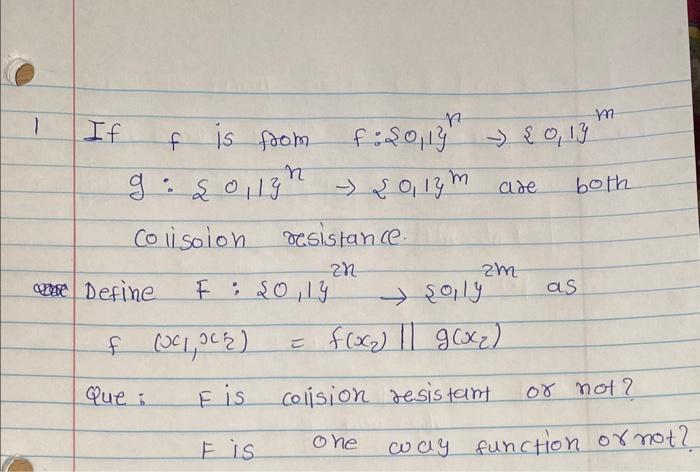 1 If f is from f : {0,1}^n → {0,1}^m
g : {0,1}^n → {0,1}^m are both
colisoion resistance.
Define F : {0,1}^2n → {0,1}^2m as
f (x1, x2) = f(x2) || g(x2)
Que : F is colision resistant or not?
F is one way function or not?